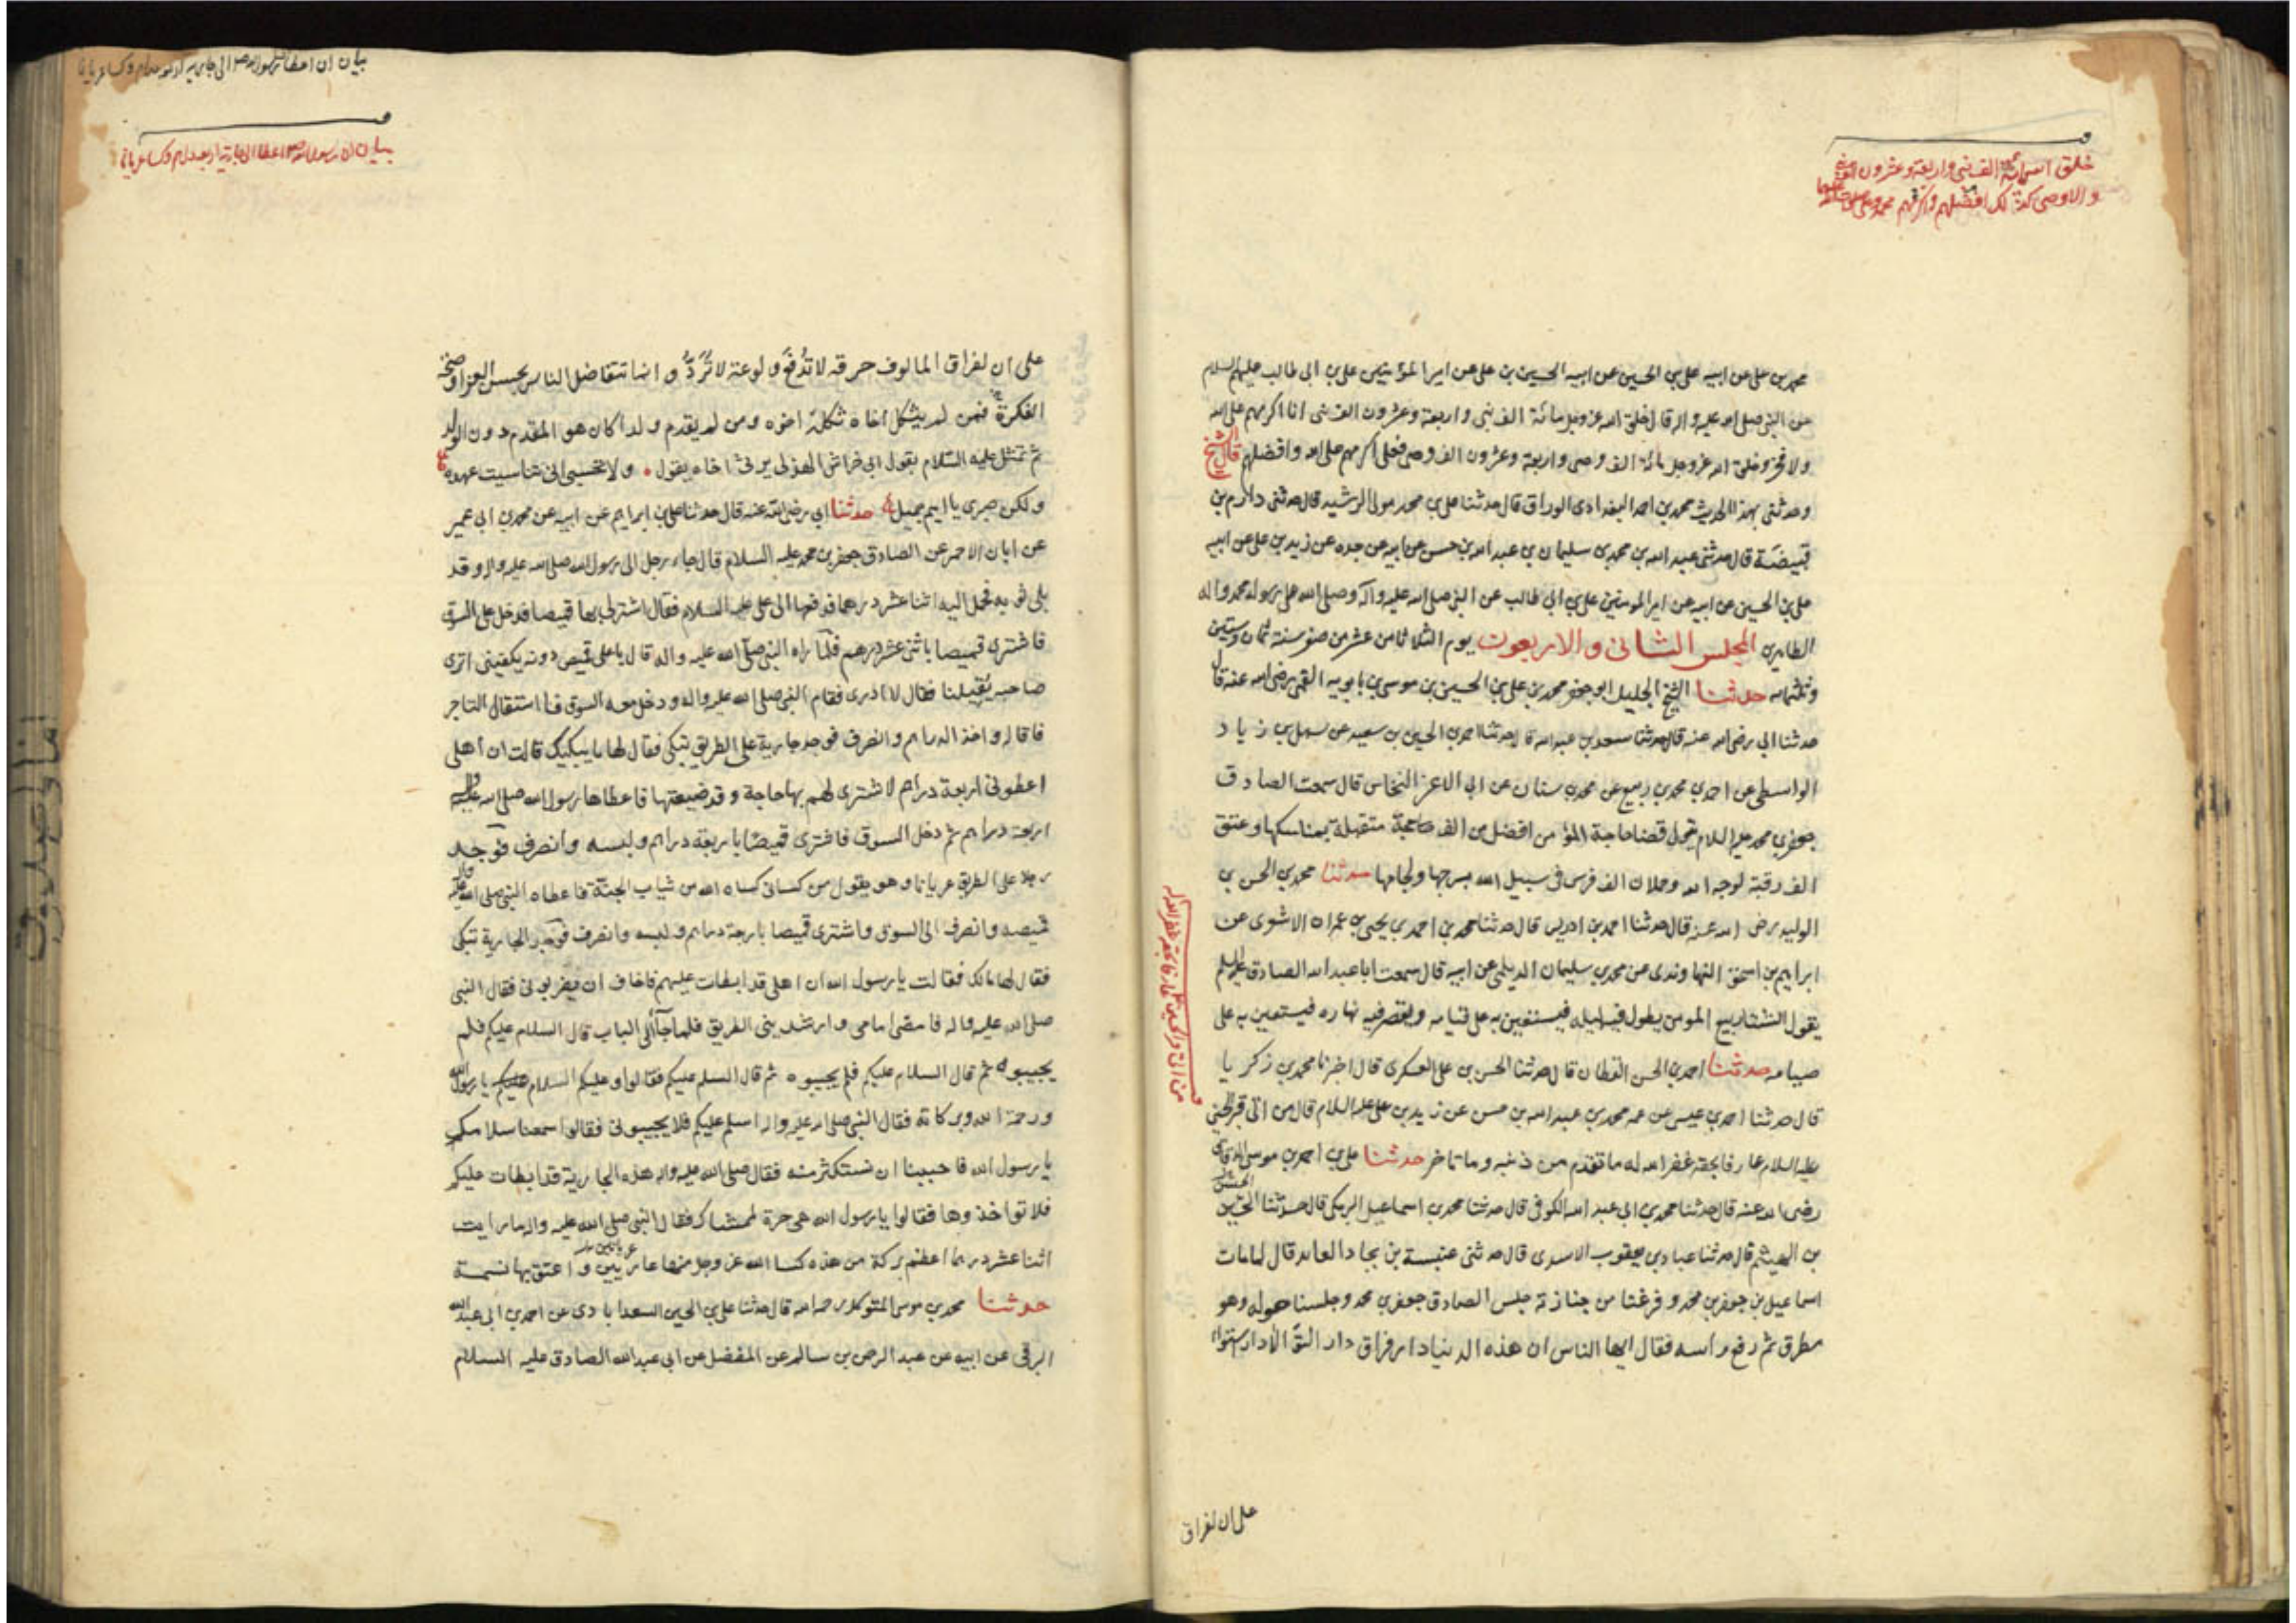 خلق الله مائة الف نبی واربعة وعشرون الف نبی
والاوصی كذلك افضلهم واكرمهم محمد وعلی
محمد بن علی عن ابیه علی بن الحسین عن ابیه الحسین بن علی عن امیر المؤمنین علی بن ابی طالب علیهم السلام
عن النبی صلی الله علیه واله قال خلق الله عز وجل مائة الف نبی واربعة وعشرون الف نبی انا اكرمهم علی الله
ولا فخر وخلق الله عز وجل مائة الف وصی واربعة وعشرون الف وصی فعلی اكرمهم علی الله وافضلهم قال الشیخ
وحدثنی بهذا الحدیث محمد بن احمد البغدادی الوراق قال حدثنا علی بن محمد مولی الرشید قال حدثنی دارم بن
قبیصة قال حدثنی عبد الله بن محمد بن سلیمان بن عبد الله بن حسن عن ابیه عن جده عن زید بن علی عن ابیه
علی بن الحسین عن ابیه عن امیر المومنین علی بن ابی طالب عن النبی صلی الله علیه واله وصلی الله علی رسوله محمد واله
الطاهرین المجلس الثانی والاربعون یوم الثلاثا ثامن عشر من صفر سنة ثمان وستین
وثلثمائه حدثنا الشیخ الجلیل ابو جعفر محمد بن علی بن الحسین بن موسی بن بابویه القمی رضی الله عنه قال
حدثنا ابی رضی الله عنه قال حدثنا سعد بن عبد الله قال حدثنا احمد بن الحسین بن سعید عن سهل بن زیاد
الواسطی عن احمد بن محمد بن ربیع عن محمد بن سنان عن ابی الاعز النخاس قال سمعت الصادق
جعفر بن محمد علیه السلام یقول قضا حاجة المؤمن افضل من الف حجة متقبلة بمناسكها وعتق
الف رقبة لوجه الله وحملان الف فرس فی سبیل الله بسرجها ولجامها حدثنا محمد بن الحسن بن
الولید رضی الله عنه قال حدثنا احمد بن ادریس قال حدثنا محمد بن احمد بن یحیی بن عمران الاشعری عن
ابراهیم بن اسحق النهاوندی عن محمد بن سلیمان الدیلمی عن ابیه قال سمعت ابا عبد الله الصادق علیه السلم
یقول الشتا ربیع المومن یطول فیه لیله فیستعین به علی قیامه ویقصر فیه نهاره فیستعین به علی
صیامه حدثنا احمد بن الحسن القطان قال حدثنا الحسن بن علی العسكری قال اخبرنا محمد بن زكریا
قال حدثنا احمد بن عیسی عن عمه محمد بن عبد الله بن حسن عن زید بن علی علیه السلام قال من اتی قبر الحسین
علیه السلام عارفا بحقه غفر الله له ما تقدم من ذنبه وما تاخر حدثنا علی بن احمد بن موسی الدقاق
رضی الله عنه قال حدثنا محمد بن ابی عبد الله الكوفی قال حدثنا محمد بن اسماعیل البرمكی قال حدثنا الحسین
بن الهیثم قال حدثنا عباد بن یعقوب الاسدی قال حدثنی عنبسة بن بجاد العابد قال لما مات
اسماعیل بن جعفر بن محمد وفرغنا من جنازته جلس الصادق جعفر بن محمد وجلسنا حوله وهو
مطرق ثم رفع راسه فقال ایها الناس ان هذه الدنیا دار فراق دار التوا لا دار استوا
علی ان لفراق
علی ان لفراق المالوف حرقه لا تدفع ولوعة لا ترد وانما تتفاضل الناس بحسن العزا وصحة
الفكرة فمن لم یثكل اخاه ثكله اخوه ومن لم یقدم ولدا كان هو المقدم دون الولد
ثم تمثل علیه السلام بقول ابی خراش الهذلی یرثی اخاه یقول ولا تحسبی انی تناسیت عهده
ولكن صبری یا امیم جمیل حدثنا ابی رضی الله عنه قال حدثنا علی بن ابراهیم عن ابیه عن محمد بن ابی عمیر
عن ابان الاحمر عن الصادق جعفر بن محمد علیه السلام قال جاء رجل الی رسول الله صلی الله علیه واله وقد
بلی ثوبه فحمل الیه اثنا عشر درهما فدفعها الی علی علیه السلام فقال اشتر لی بها قمیصا فدخل علی السوق
فاشتری قمیصا باثنی عشر درهم فلما راه النبی صلی الله علیه واله قال یا علی قمیص دونه یكفینی اتری
صاحبه یقیلنا فقال لا ادری فقام النبی صلی الله علیه واله ودخل معه السوق فاستقال التاجر
فاقاله واخذ الدراهم وانصرف فوجد جاریة علی الطریق تبكی فقال لها ما یبكیك قالت ان اهلی
اعطونی اربعة دراهم لاشتری لهم بها حاجة وقد ضیعتها فاعطاها رسول الله صلی الله علیه واله
اربعة دراهم ثم دخل السوق فاشتری قمیصا باربعة دراهم ولبسه وانصرف فوجد
رجلا علی الطریق عریانا وهو یقول من كسانی كساه الله من ثیاب الجنة فاعطاه النبی صلی الله علیه واله
قمیصه وانصرف الی السوق واشتری قمیصا باربعة دراهم ولبسه وانصرف فوجد الجاریة تبكی
فقال لها مالك فقالت یا رسول الله ان اهلی قد ابطات علیهم فاخاف ان یضربونی فقال النبی
صلی الله علیه واله فامضی امامی وارشدینی الطریق فلما جاء الی الباب قال السلام علیكم فلم
یجیبوه ثم قال السلام علیكم فلم یجیبوه ثم قال السلم علیكم فقالوا وعلیكم السلام علیكم یا رسول الله
ورحمة الله وبركاته فقال النبی صلی الله علیه واله اسلم علیكم فلا یجیبونی فقالوا سمعنا سلامكم
یا رسول الله فاحببنا ان نستكثر منه فقال صلی الله علیه واله هذه الجاریة قد ابطات علیكم
فلا تواخذوها فقالوا یا رسول الله هی حرة لممشاك فقال النبی صلی الله علیه واله ما رایت
اثنا عشر درهما اعظم بركة من هذه كسا الله عز وجل منها عاریین واعتق بها نسمة
حدثنا محمد بن موسی المتوكل رحمه الله قال حدثنا علی بن الحسین السعدابادی عن احمد بن ابی عبد الله
البرقی عن ابیه عن عبد الرحمن بن سالم عن المفضل عن ابی عبد الله الصادق علیه السلام